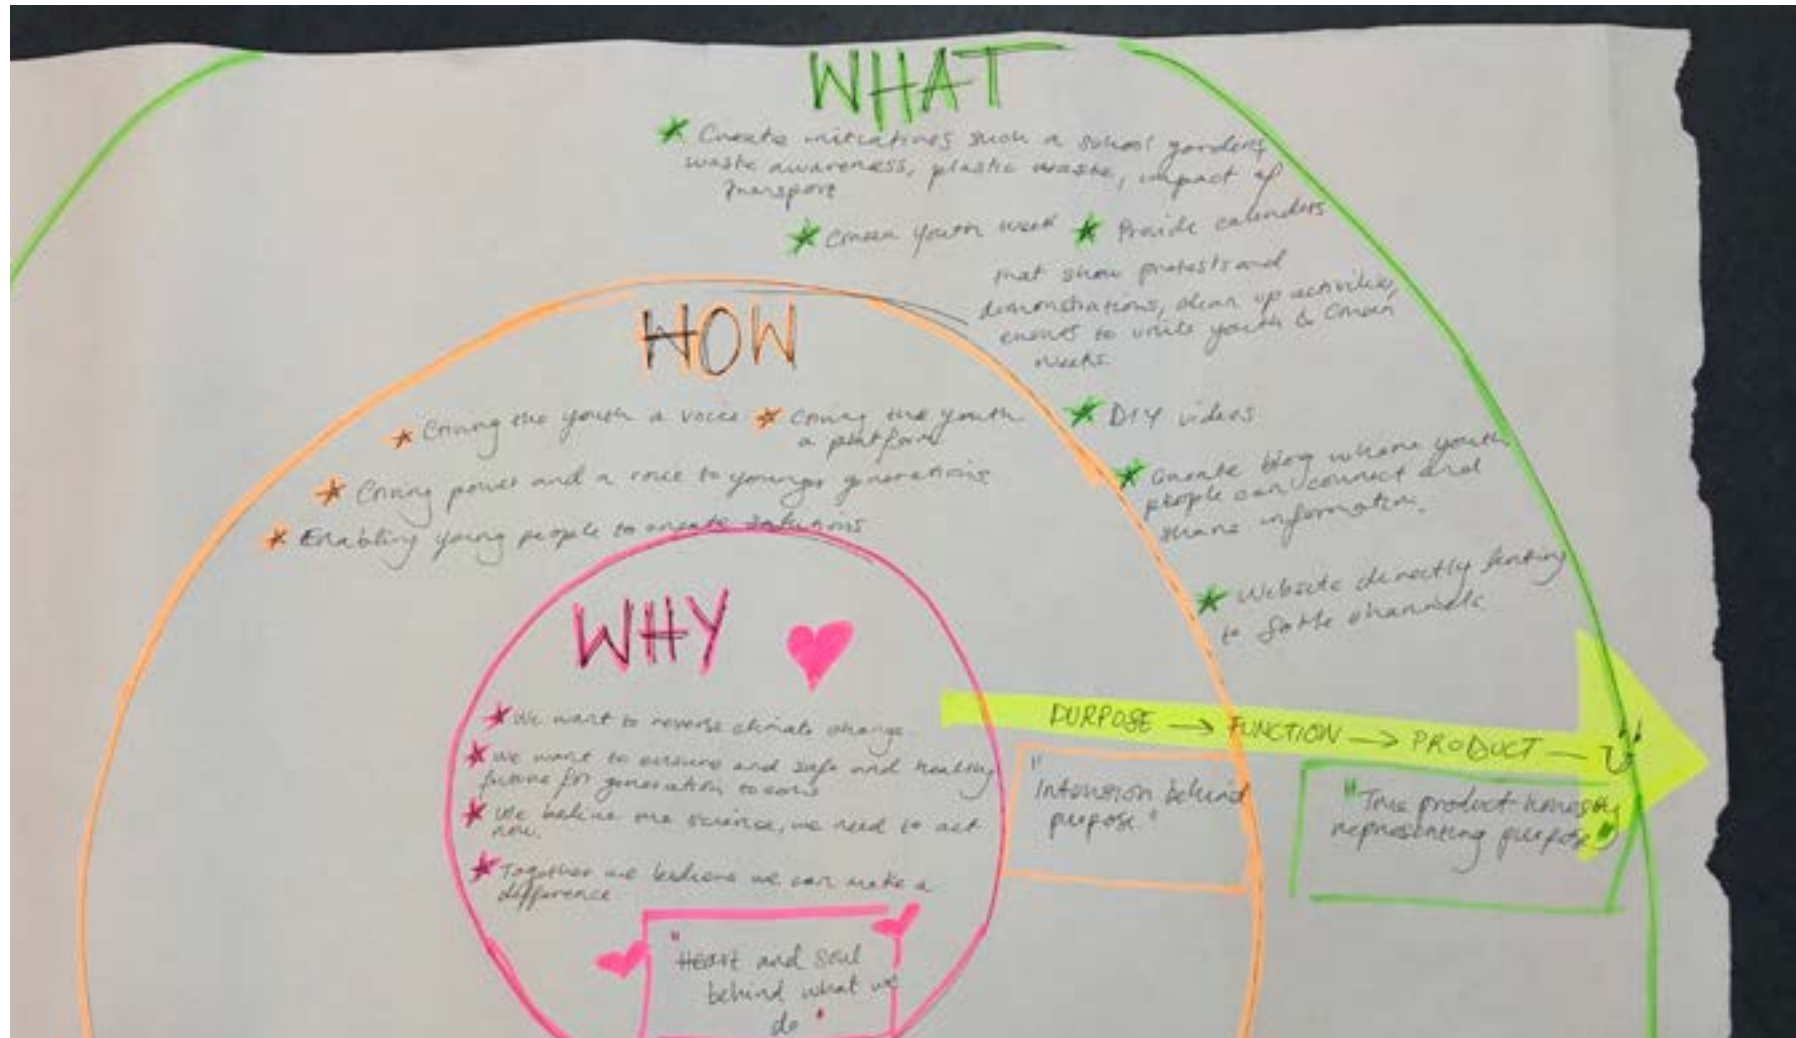 WHAT
* Create initiatives such a school gardens,
waste awareness, plastic waste, impact of
transport
* Green Youth week
* Provide calenders
that show protests and
demonstrations, clean up activities,
to unite youth & Green
weeks.
* DIY videos
* Create blog where young
people can connect and
share information.
* Website directly linking
to channels
HOW
* Giving the youth a voice
* Giving the youth
a platform
* Giving power and a voice to younger generations
* Enabling young people to create solutions
WHY
* We want to reverse climate change
* We want to ensure and safe and healthy
future for generation to come
* We believe the science, we need to act
now.
* Together we believe we can make a
difference
"Heart and soul
behind what we
do"
PURPOSE → FUNCTION → PRODUCT —
"Intension behind
purpose"
"True product honestly
representing purpose"